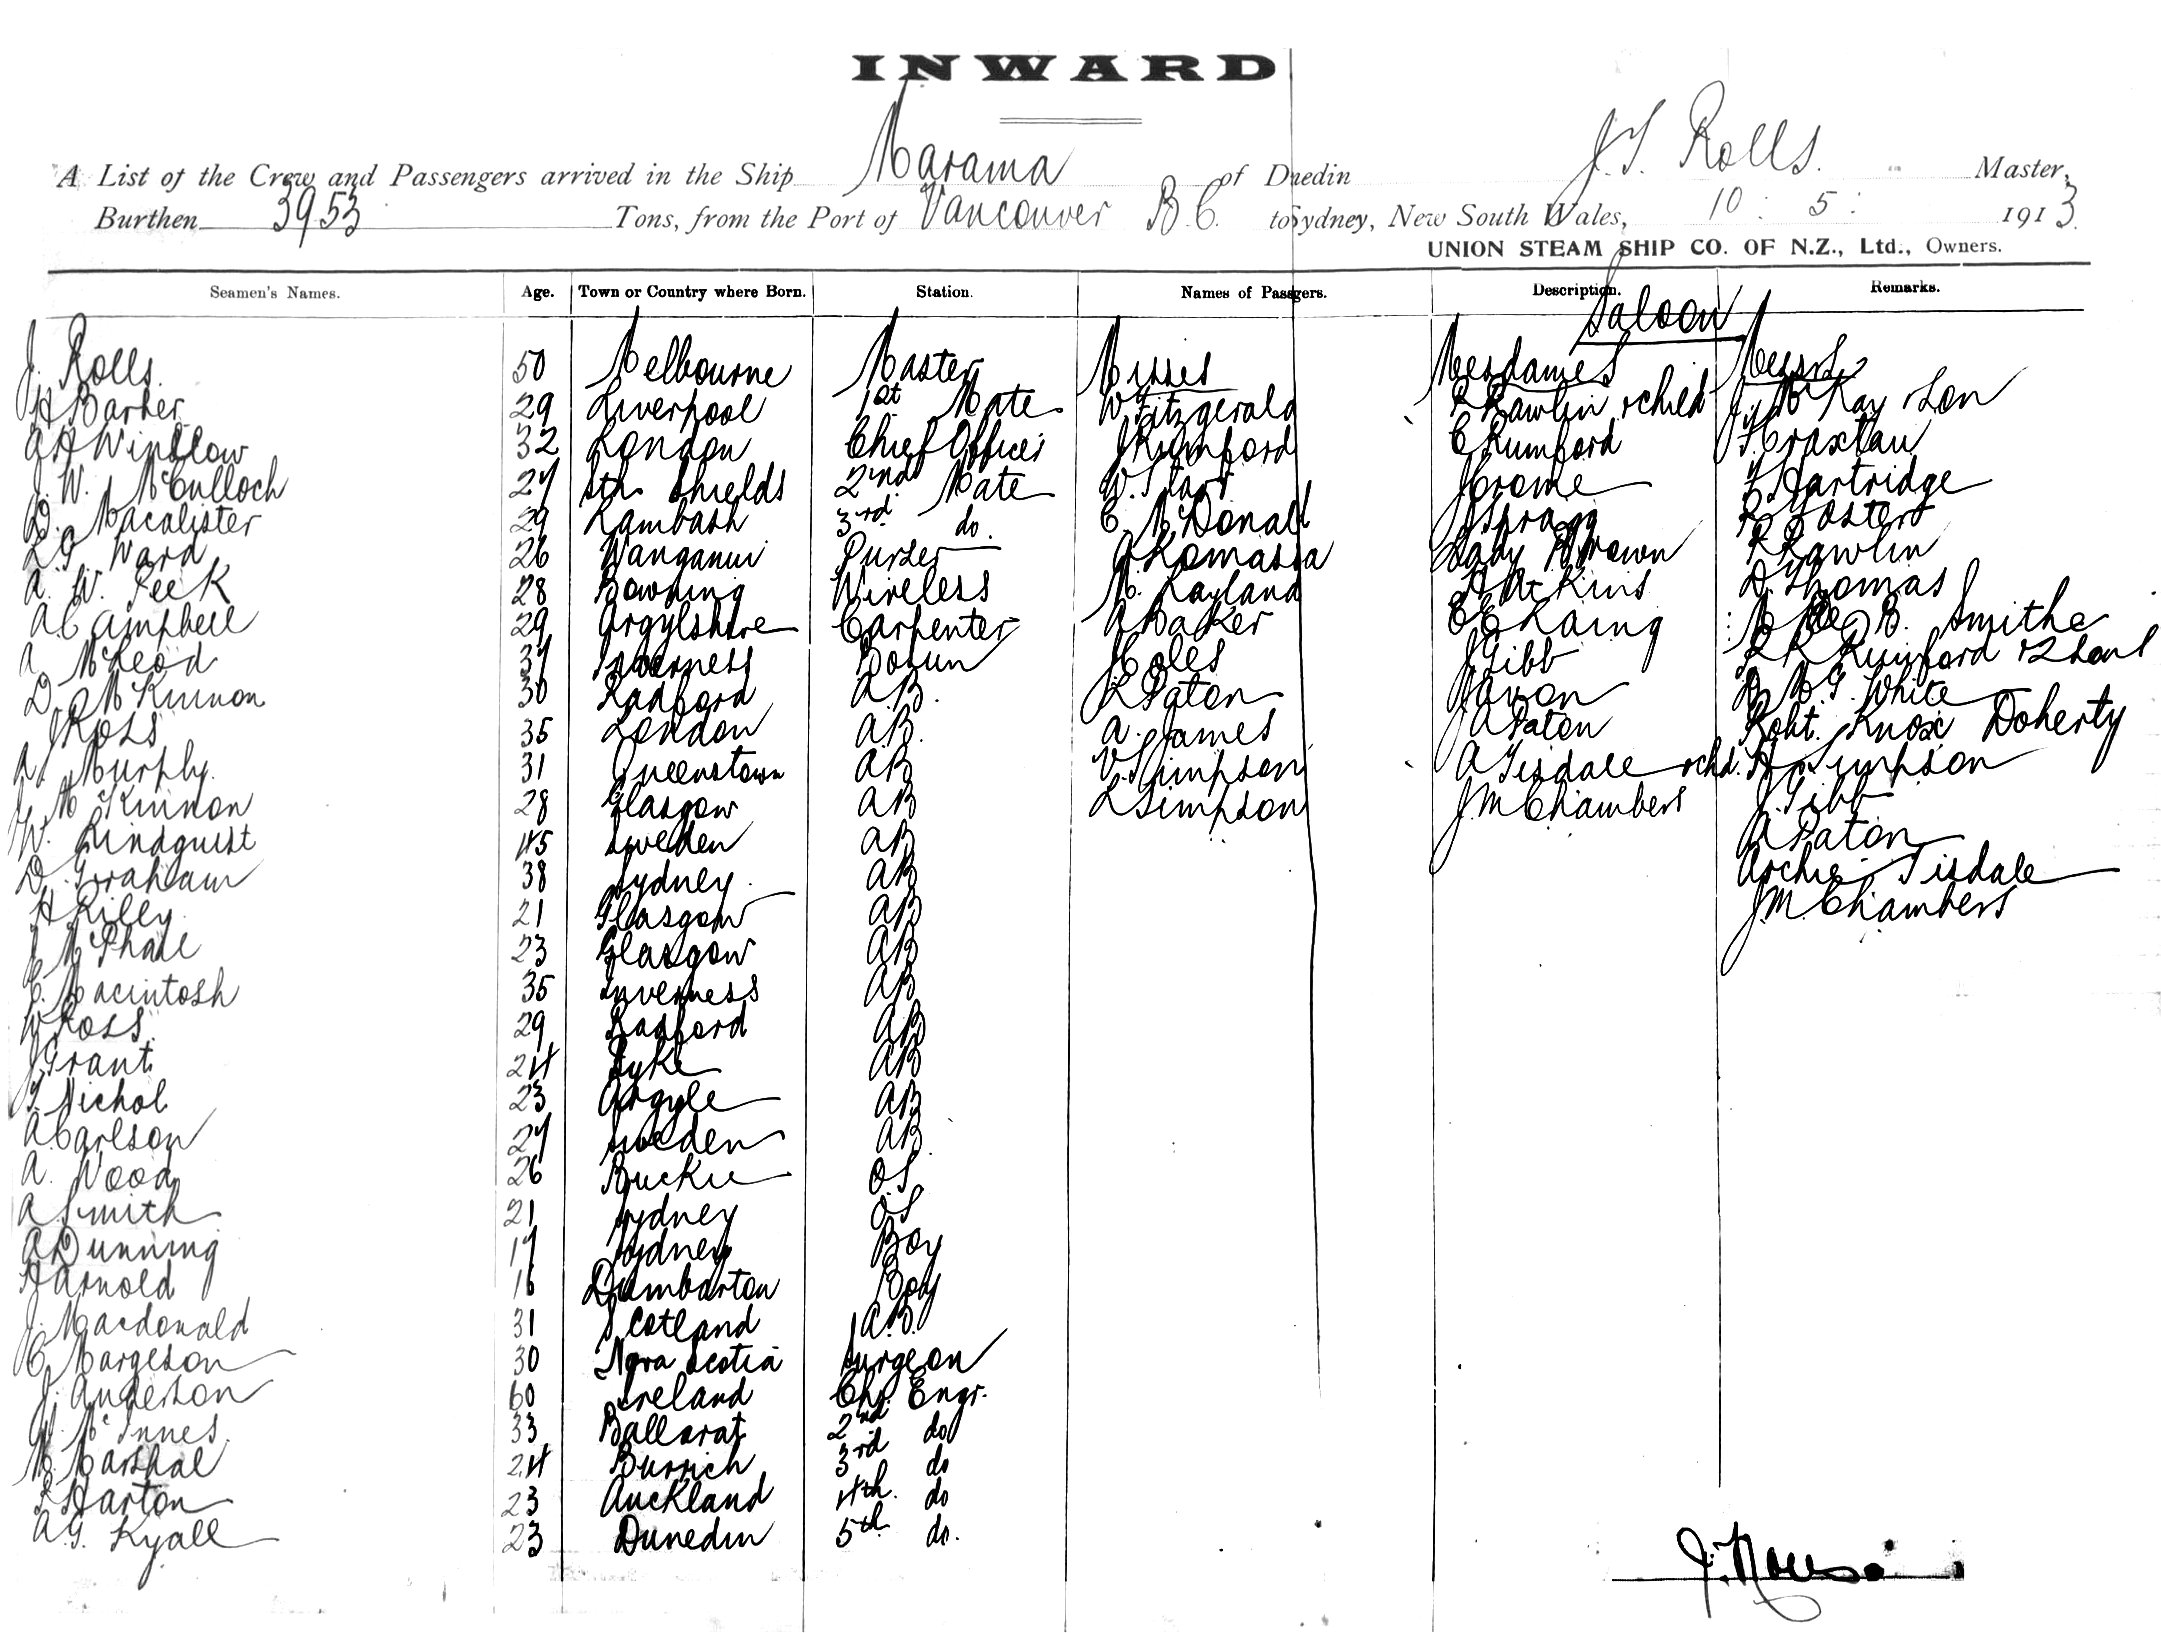 INWARD
A List of the Crew and Passengers arrived in the Ship Marama of Duedin J. T. Rolls. Master,
Burthen 3953 Tons, from the Port of Vancouver B.C. to Sydney, New South Wales, 10 : 5 : 1913.
UNION STEAM SHIP CO. OF N.Z., Ltd., Owners.
Seamen's Names. Age. Town or Country where Born. Station. Names of Passgers. Description. Remarks.
Saloon
J. Rolls. 50 Melbourne Master Misses Mesdames Messrs
H Barber 29 Liverpool 1st Mate W Fitzgerald F Rawlin & child J. McKay & Son
A H Winslow 32 London Chief Officer J Rumford C Rumford T Craxtan
J. W. McCulloch 27 Sth Shields 2nd Mate W. Start J Crome F Hartridge
D. Macalister 29 Kambash 3rd do. C McDonald J Spragg R Foster
L. G. Ward 26 Wanganui Purser A Komassa Lady Brown F Rawlin
A. W. Peek 28 Bowning Wireless M. Layland A Atkins D Thomas
A Campbell 29 Argylshire Carpenter A Baker E E Laing B. Smithe
A McLeod 37 Inverness Bosun J Coles J Gibb R R Rumford & 2 sons
D. McKinnon 30 Radford A.B. L Paton J Avon White
J Ross 35 London A.B. A. James J A Paton Robt. Knox Doherty
A. Murphy. 31 Queenstown AB V Simpson A Tisdale & chd. H Simpson
J McKinnon 28 Glasgow AB L Simpson J. M Chambers J. Gibb
W. Lindquist 45 Sweden AB A Paton
D. Graham 38 Sydney AB Archie Tisdale
H Rilly. 21 Glasgow AB J. M. Chambers
J McPhail 23 Glasgow AB
C. Macintosh 35 Inverness AB
W Ross. 29 Radford AB
J Grant. 24 Fyke AB
T. Nichol 23 Argyle AB
A Carlson 27 Sweden AB
A. Wood 26 Buckie O.S
A Smith 21 Sydney OS
A Dunning 17 Sydney Boy
H Arnold 16 Dumbarton Boy
J. Macdonald 31 Scotland A.B.
C. Margeson 30 Nova Scotia Surgeon
J. Anderson 60 Ireland Chf. Engr.
W. McInnes. 33 Ballarat 2nd do
M. Marshal 24 Burrich 3rd do
F Harton 23 Auckland 4th. do
A. G. Kyall 23 Dunedin 5th do.